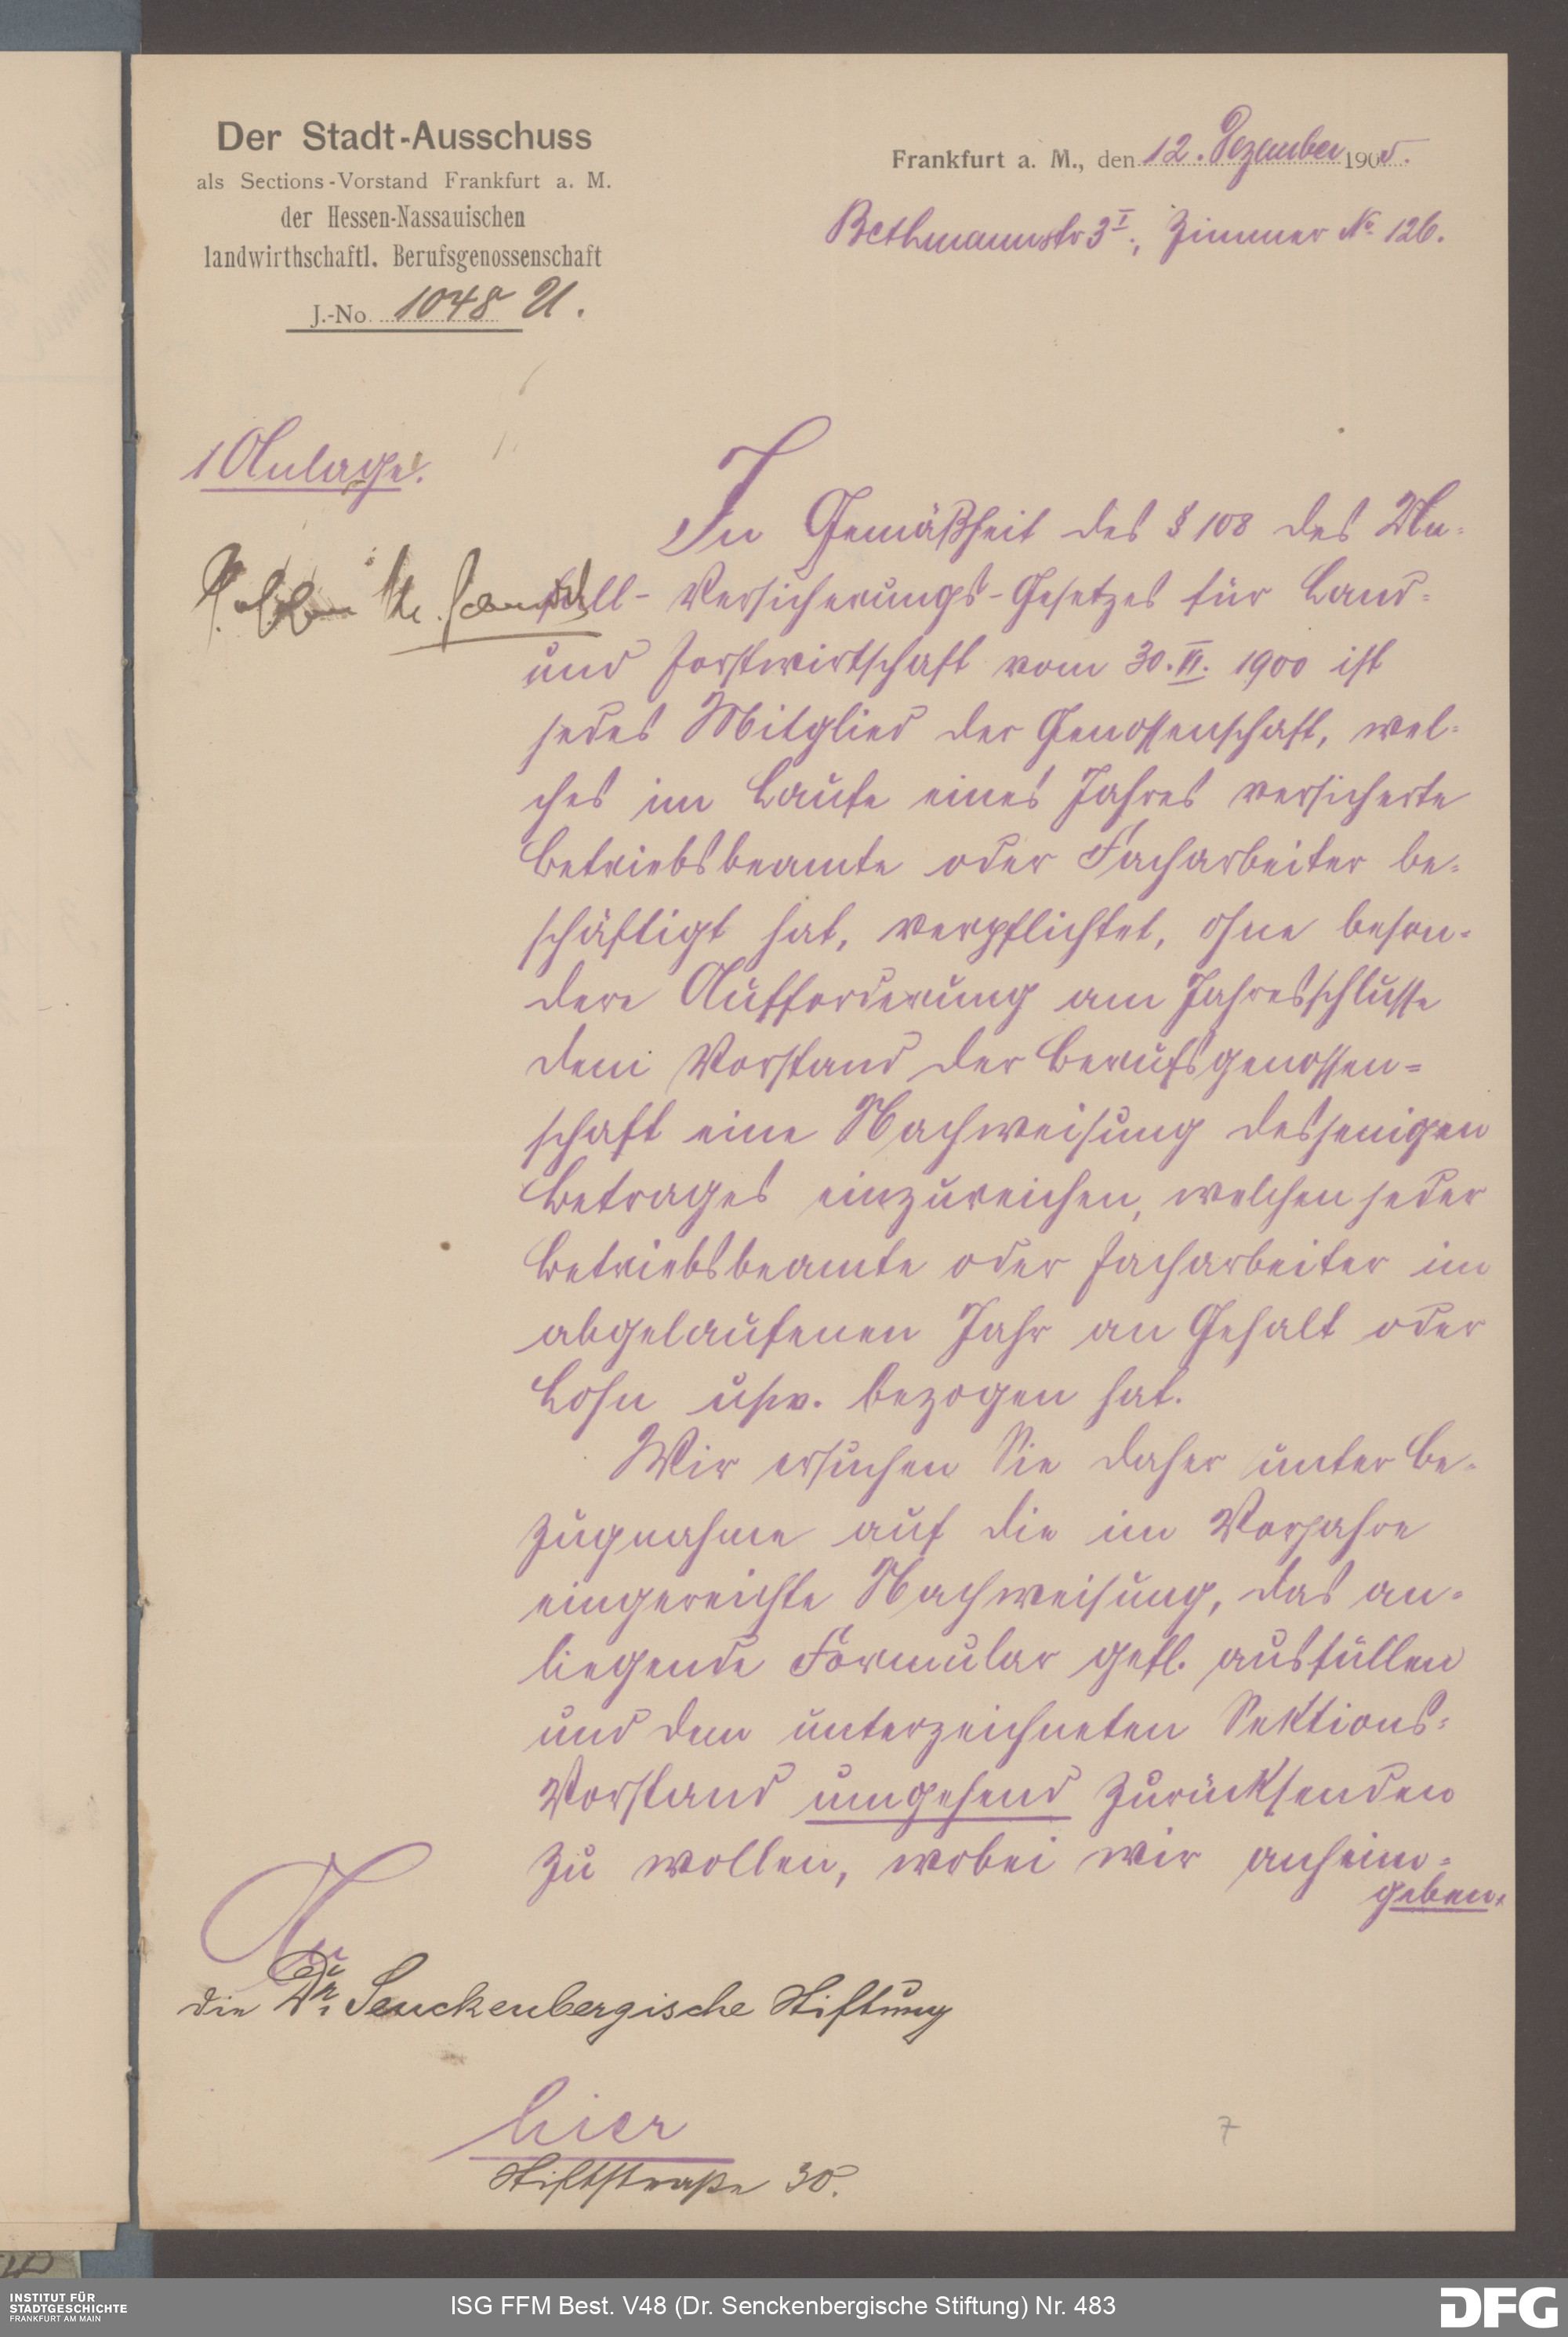 Der Stadt-Ausschuss
als Sections-Vorstand Frankfurt a. M.
der Hessen-Nassauischen
landwirthschaftl. Berufsgenossenschaft
J.-No. 1048 U.
Frankfurt a. M., den 12. Dezember 1905.
Bethmannstr 3 I., Zimmer No 126.
1 Anlage.
In Gemäßheit des § 108 des Un-
fall-Versicherungs-Gesetzes für Land-
und Forstwirtschaft vom 30. VI. 1900 ist
jedes Mitglied der Genossenschaft, wel-
ches im Laufe eines Jahres versicherte
Betriebsbeamte oder Facharbeiter be-
schäftigt hat, verpflichtet, ohne beson-
dere Aufforderung am Jahresschlusse
dem Vorstand der Berufsgenossen-
schaft eine Nachweisung desjenigen
Betrages einzureichen, welchen jeder
Betriebsbeamte oder Facharbeiter im
abgelaufenen Jahr an Gehalt oder
Lohn usw. bezogen hat.
Wir ersuchen Sie daher unter Be-
zugnahme auf die im Vorjahre
eingereichte Nachweisung, das an-
liegende Formular gefl. ausfüllen
und dem unterzeichneten Sektions-
Vorstand umgehend zurücksenden
zu wollen, wobei wir anheim-
geben.
An
die Dr. Senckenbergische Stiftung
hier
Stiftstraße 30.
7
INSTITUT FÜR
STADTGESCHICHTE
FRANKFURT AM MAIN
ISG FFM Best. V48 (Dr. Senckenbergische Stiftung) Nr. 483
DFG